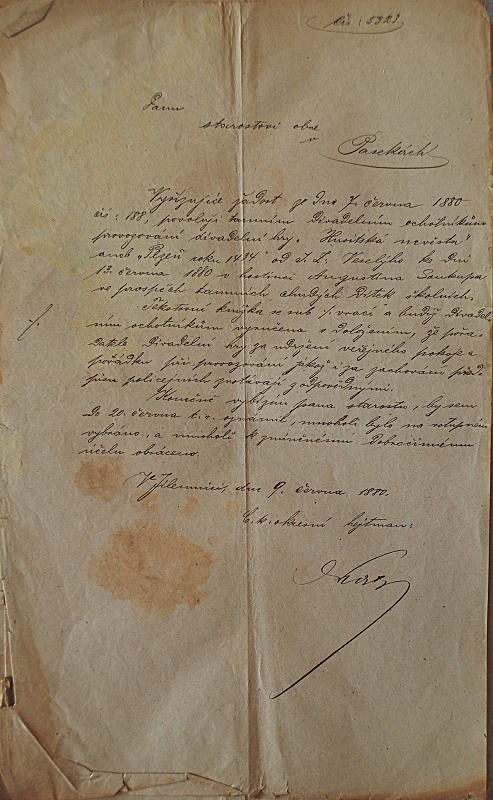 čís: 5323
Panu
starostovi obce
v
Pasekách
Vyřizujíce žádost ze dne 7. června 1880
čís: 188, povoluji tamním divadelním ochotníkům
provozování divadelní hry „Husitská nevěsta“
aneb „Plzeň roku 1434“ od J. L: Veselýho ke dni
13. června 1880 v hostinci Augustina Soukupa
ve prospěch tamních chudých dítek školních.
Tekstová knížka se sub ./. vrací a budiž divadel-
ním ochotníkům vyručena s doložením, že pořa-
datelé divadelní hry za udržení veřejného pokoje a
pořádku při provozování jakož i za zachování před-
pisů policejních zůstávají zodpovědnými.
Konečně vybízím pana starostu, by sem
do 20. června t. r. oznámil, mnoholi bylo na vstupném
vybráno, a mnoholi k zmíněnému dobročinnému
účelu obráceno.
V Jilemnici, dne 9. června 1880.
C. k. okresní hejtman: